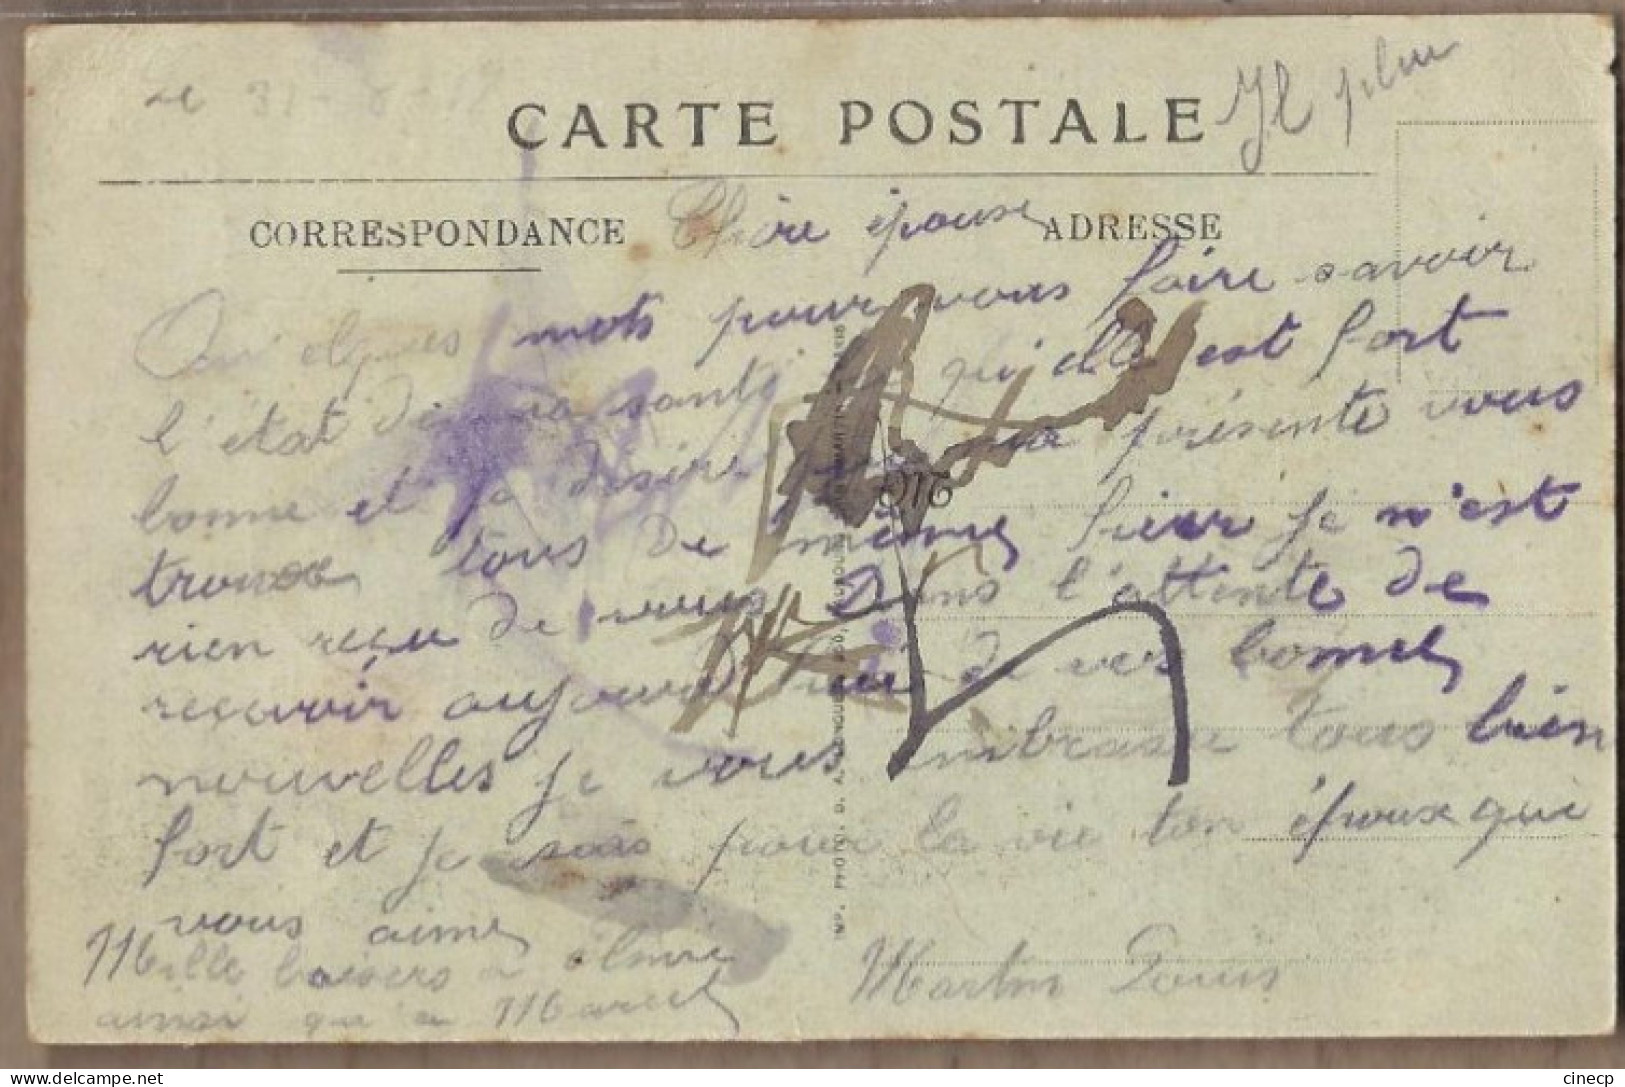 Le 31-8-
CARTE POSTALE
Il pleu
CORRESPONDANCE
ADRESSE
Chère épouse
Quelques mots pour vous faire savoir
l'état de ma santé qu'elle est fort
bonne et je désire que ma présente vous
trouve tous de même hier je n'est
rien reçu de vous Dans l'attente de
recevoir aujourd'hui de vos bonnes
nouvelles je vous embrasse tous bien
fort et je suis pour la vie ton époux qui
vous aime
Mille baisers a
ainsi qu a Marcel
Martin Louis